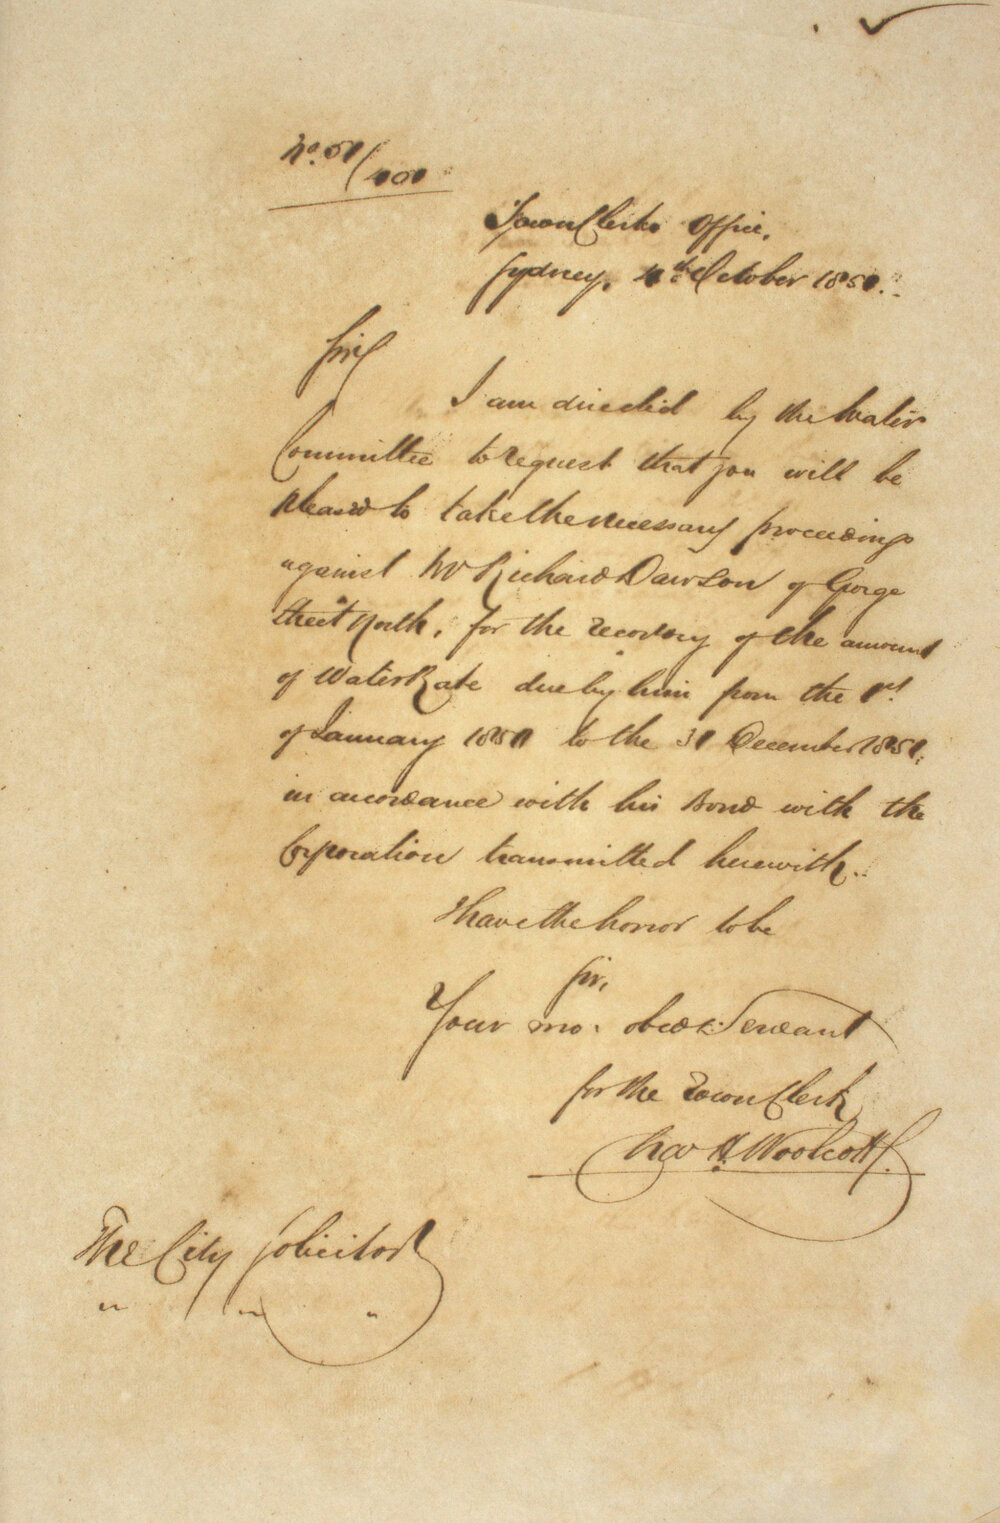 No. 51/401
Town Clerks Office,
Sydney, 4th October 1851.
Sir
I am directed by the Water
Committee to request that you will be
pleased to take the necessary proceedings
against Mr Richard Dawson of George
Street North, for the recovery of the amount
of Water Rate due by him from the 1st
of January 1851 to the 31 December 1851,
in accordance with his Bond with the
Corporation transmitted herewith.
I have the honor to be
Sir,
Your mo. obedt. Servant
for the Town Clerk
Chas H Woolcott
The City Solicitor
" " "